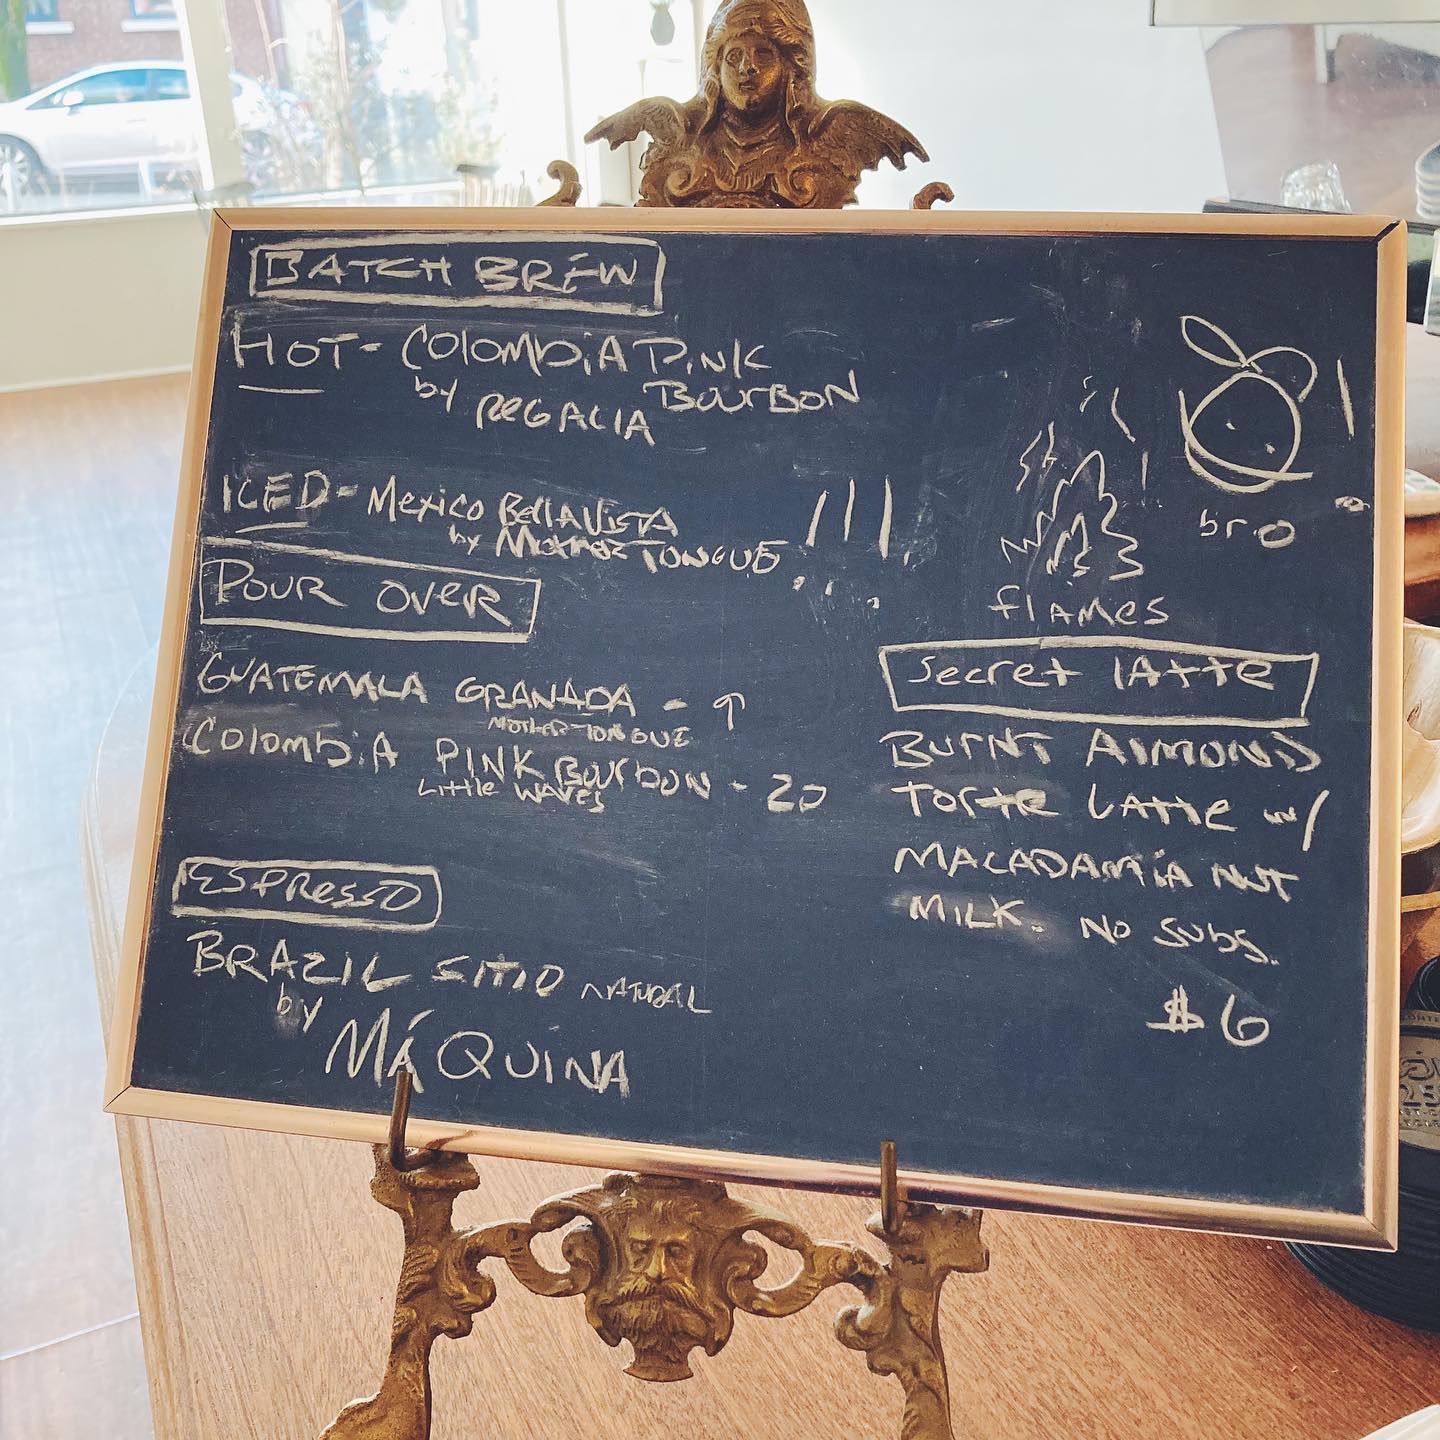 BATCH BREW
HOT - COLOMBiA PiNK
BOURBON
by REGALIA
ICED - Mexico BELLAVISTA
by MOTHER TONGUE !!!
POUR OVER
GUATEMALA GRANADA - ↑
MOTHER TONGUE
COLOMBiA PINK BOURBON - 20
Little WAVES
ESPRESSO
BRAZIL SITIO NATURAL
by
MÁQUINA
bro
flAMES
Secret lAtte
BURNT AlMOND
Torte LAtte w/
MACADAMiA NUT
MILK. NO SUBS.
$6